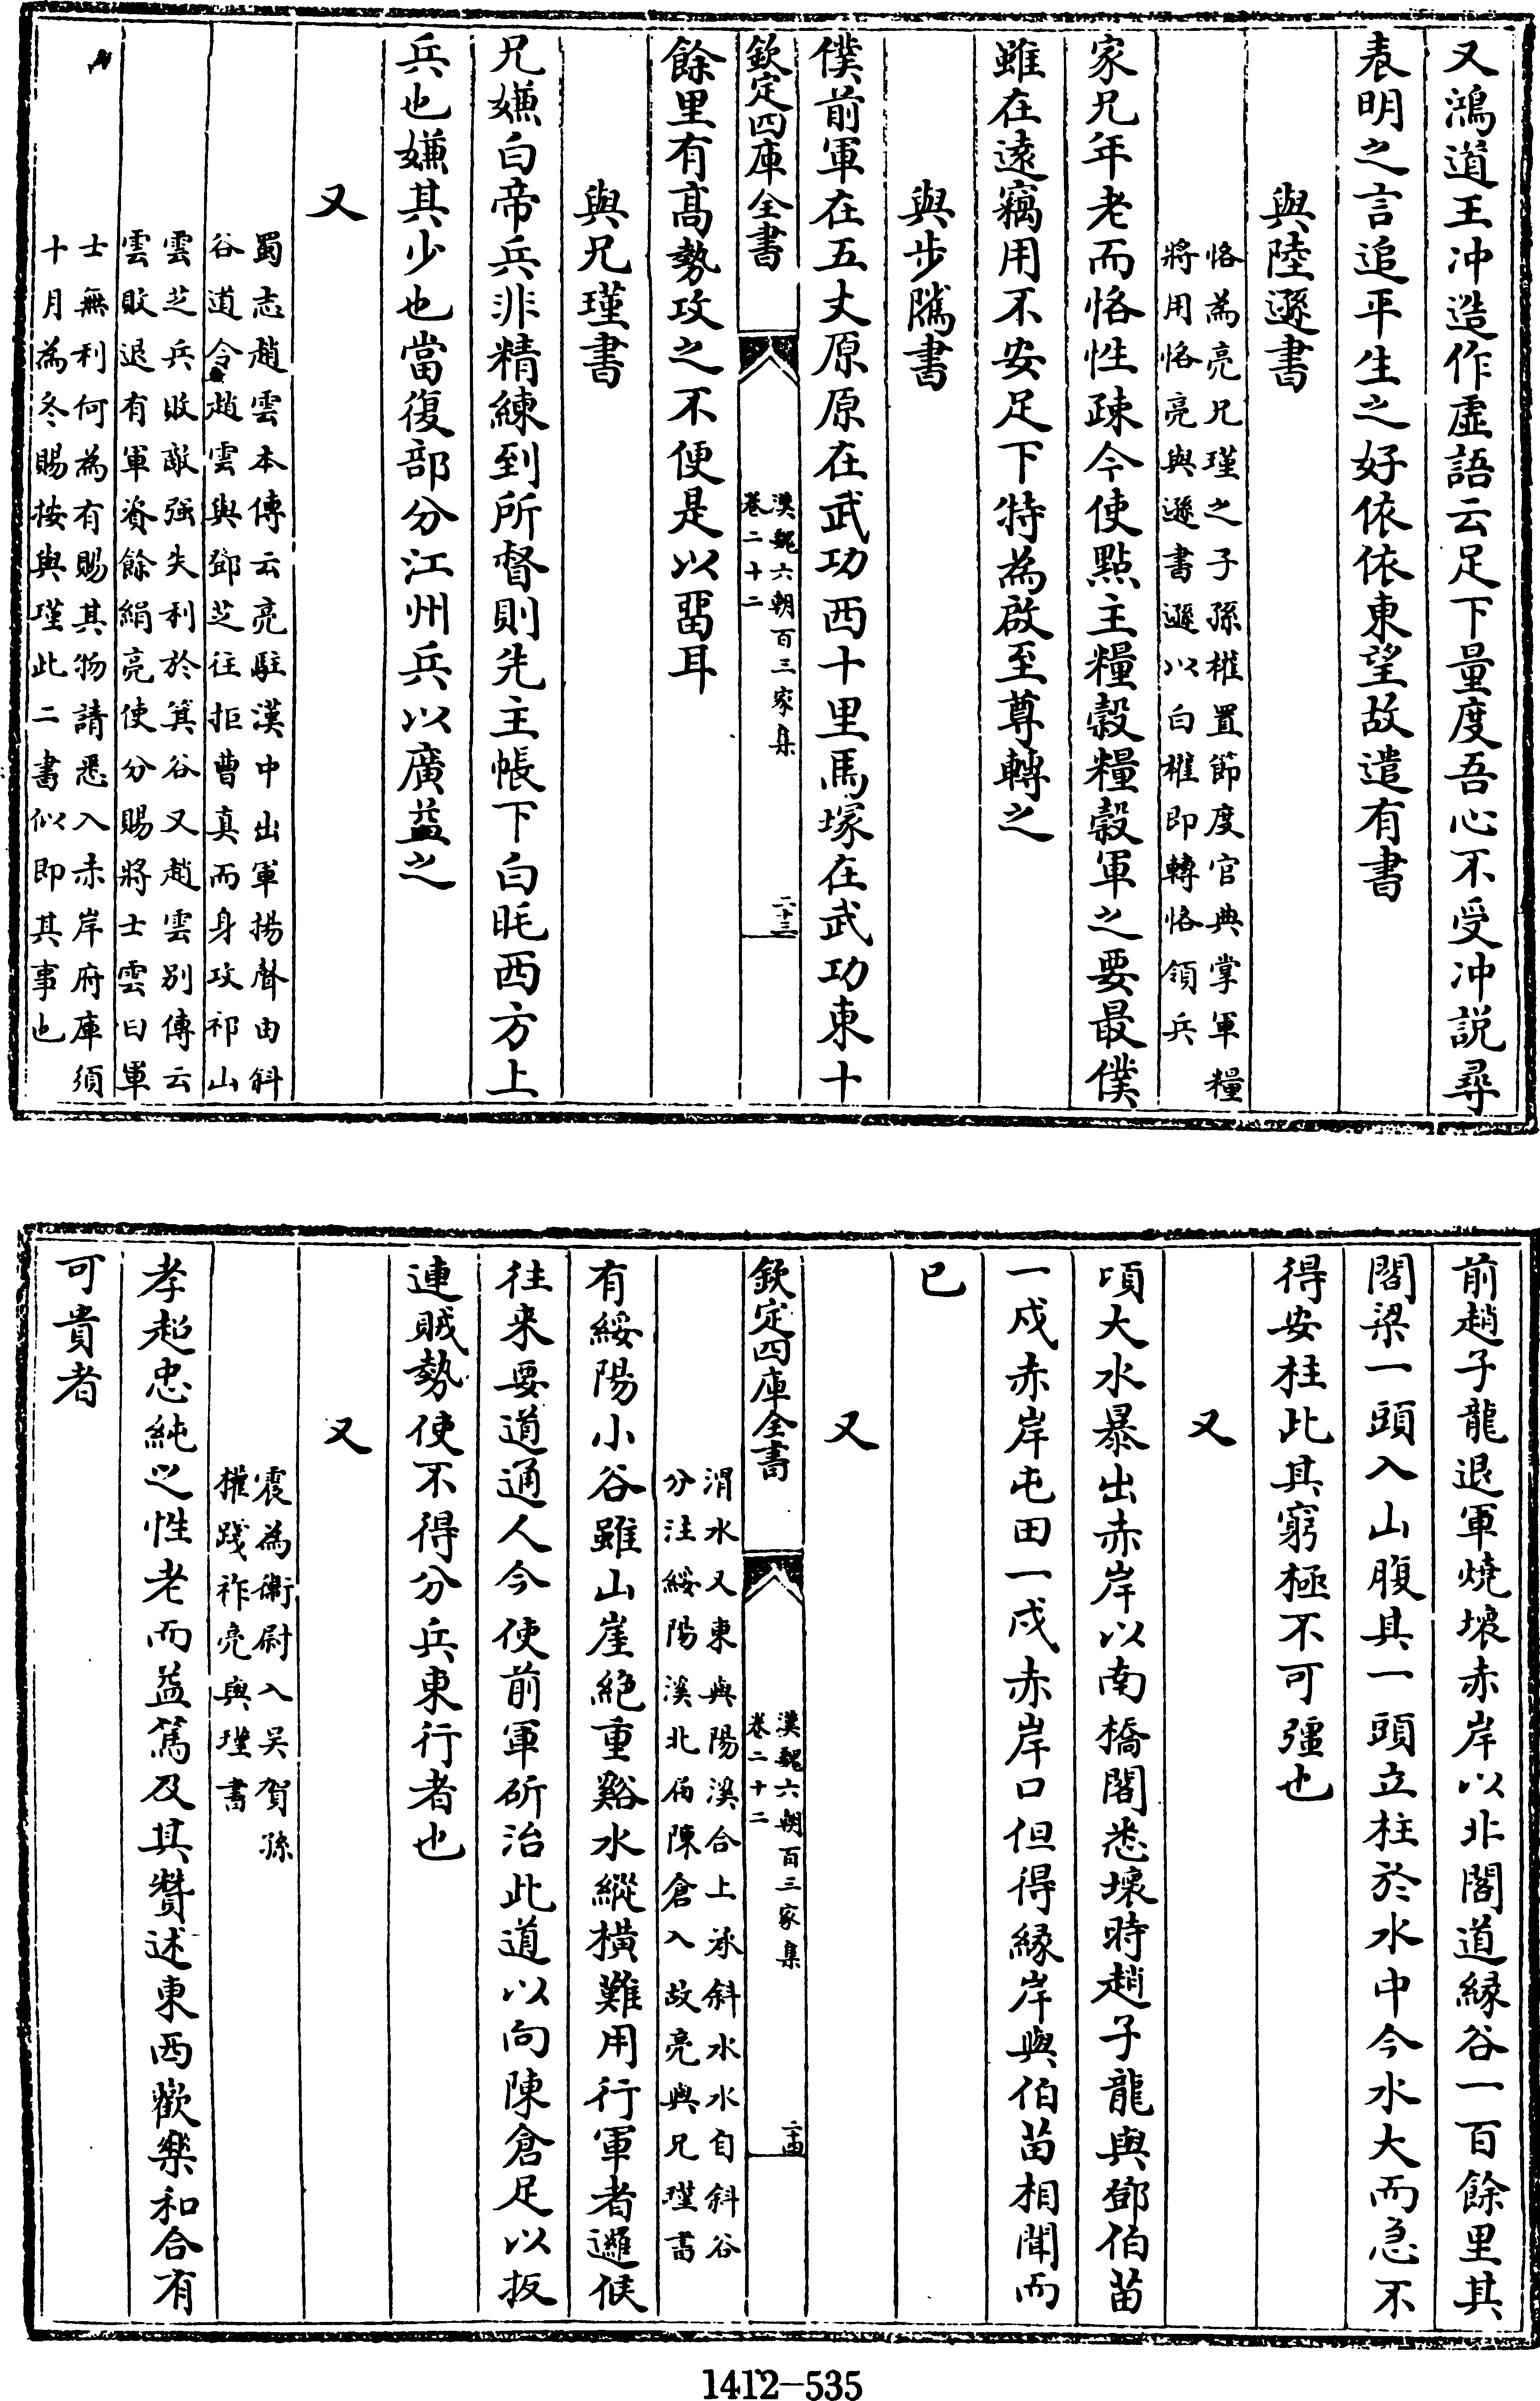 又鴻道王冲造作虛語云足下量度吾心不受冲説尋
表明之言追平生之好依依東望故遣有書
與陸遜書
恪為亮兄瑾之子孫權置節度官典掌軍糧
將用恪亮與遜書遜以白權即轉恪領兵
家兄年老而恪性疎今使㸃主糧穀糧穀軍之要最僕
雖在逺竊用不安足下特為啟至尊轉之
與步隲書
僕前軍在五丈原原在武功西十里馬塚在武功東十
欽定四庫全書
漢魏六朝百三家集
卷二十二
二十三
餘里有髙勢攻之不便是以畱耳
與兄瑾書
兄嫌白帝兵非精練到所督則先主帳下白毦西方上
兵也嫌其少也當復部分江州兵以廣益之
又
蜀志趙雲本傳云亮駐漢中出軍揚聲由斜
谷道令趙雲與鄧芝往拒曹真而身攻祁山
雲芝兵敗敵强失利於箕谷又趙雲别傳云
雲敗退有軍資餘絹亮使分賜將士雲曰軍
士無利何為有賜其物請悉入赤岸府庫須
十月為冬賜按與瑾此二書似即其事也
前趙子龍退軍燒壞赤岸以北閣道緣谷一百餘里其
閣梁一頭入山腹其一頭立柱於水中今水大而急不
得安柱此其窮極不可彊也
又
頃大水暴出赤岸以南橋閣悉壞時趙子龍與鄧伯苗
一戍赤岸屯田一戍赤岸口但得緣岸與伯苗相聞而
已
又
欽定四庫全書
漢魏六朝百三家集
卷二十二
二十四
渭水又東與陽溪合上承斜水水自斜谷
分注綏陽溪北屆陳倉入故亮與兄瑾書
有綏陽小谷雖山崖絶重谿水縱横難用行軍者邏候
往来要道通人今使前軍斫治此道以向陳倉足以扳
連賊勢使不得分兵東行者也
又
震為衛尉入吴賀孫
權踐祚亮與瑾書
孝起忠純之性老而益篤及其贊述東西歡樂和合有
可貴者
1412-535